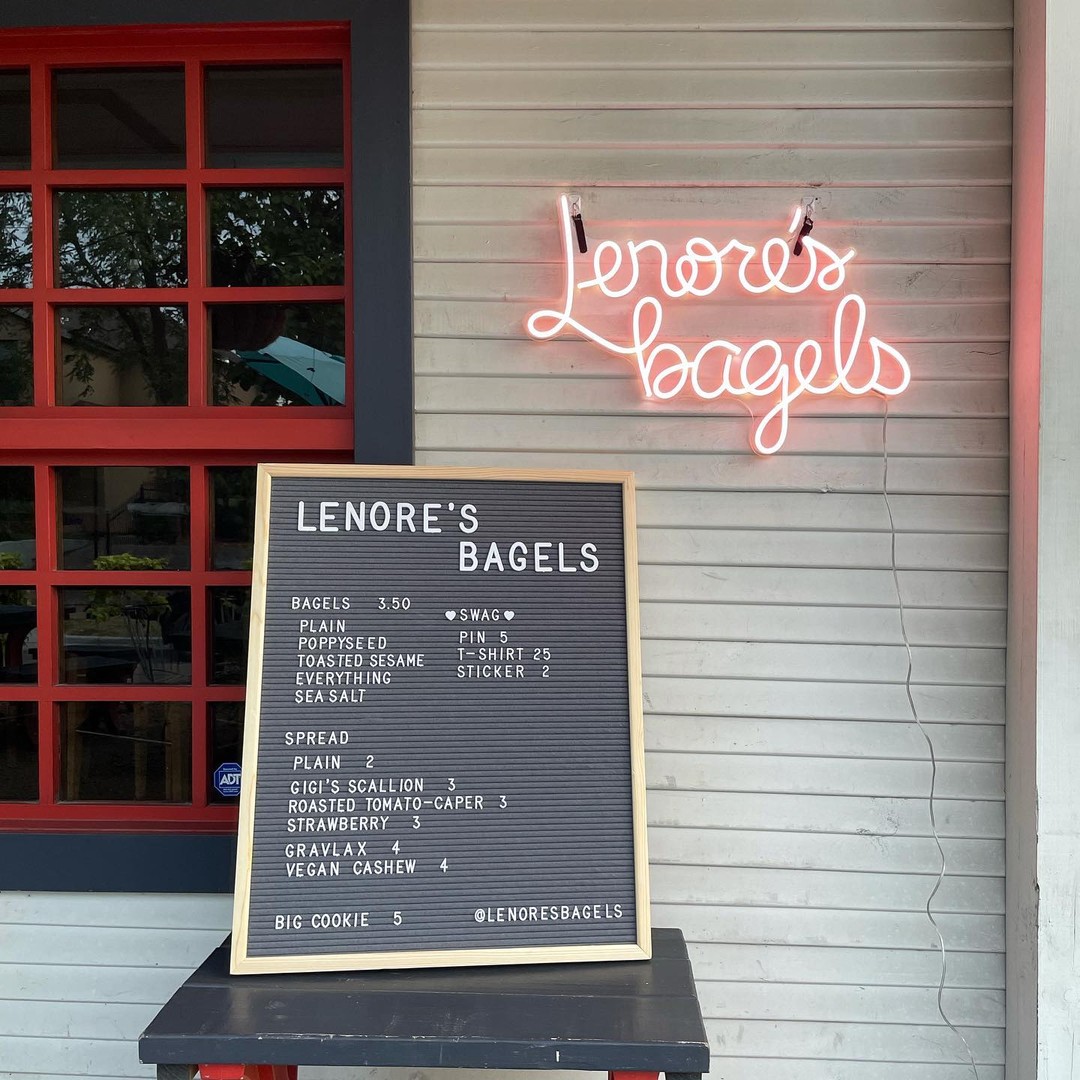 Lenore's
bagels
LENORE'S
BAGELS
BAGELS 3.50
PLAIN
POPPYSEED
TOASTED SESAME
EVERYTHING
SEA SALT
♥SWAG♥
PIN 5
T-SHIRT 25
STICKER 2
SPREAD
PLAIN 2
GIGI'S SCALLION 3
ROASTED TOMATO-CAPER 3
STRAWBERRY 3
GRAVLAX 4
VEGAN CASHEW 4
BIG COOKIE 5
@LENORESBAGELS
ADT